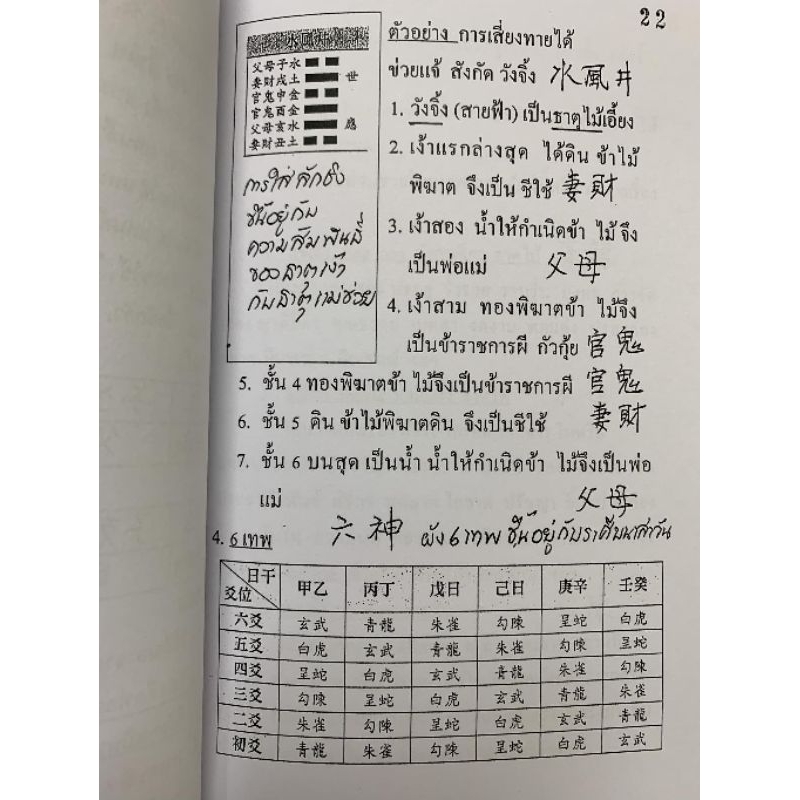 22
水風井
父母子水
妻財戌土 世
官鬼申金
官鬼酉金
父母亥水 應
妻財丑土
การใส่ลักชิง
ขึ้นอยู่กับ
ความสัมพันธ์
ของธาตุเจ้า
กับธาตุแม่ช่อย
ตัวอย่าง การเสี่ยงทายได้
ข่วยแจ้ สังกัด วังจิ้ง 水風井
1. วังจิ้ง (สายฟ้า) เป็นธาตุไม้เอี้ยง
2. เง้าแรกล่างสุด ได้ดิน ข้าไม้
พิฆาต จึงเป็น ชีใช้ 妻財
3. เง้าสอง น้ำให้กำเนิดข้า ไม้ จึง
เป็นพ่อแม่ 父母
4. เง้าสาม ทองพิฆาตข้า ไม้จึง
เป็นข้าราชการผี กัวกุ้ย 官鬼
5. ชั้น 4 ทองพิฆาตข้า ไม้จึงเป็นข้าราชการผี 官鬼
6. ชั้น 5 ดิน ข้าไม้พิฆาตดิน จึงเป็นชีใช้ 妻財
7. ชั้น 6 บนสุด เป็นน้ำ น้ำให้กำเนิดข้า ไม้จึงเป็นพ่อ
แม่ 父母
4. 6 เทพ 六神 ผัง 6 เทพ ขึ้นอยู่กับราศีบนเสาวัน
日干 爻位 甲乙 丙丁 戊日 己日 庚辛 壬癸
六爻 玄武 青龍 朱雀 勾陳 呈蛇 白虎
五爻 白虎 玄武 青龍 朱雀 勾陳 呈蛇
四爻 呈蛇 白虎 玄武 青龍 朱雀 勾陳
三爻 勾陳 呈蛇 白虎 玄武 青龍 朱雀
二爻 朱雀 勾陳 呈蛇 白虎 玄武 青龍
初爻 青龍 朱雀 勾陳 呈蛇 白虎 玄武